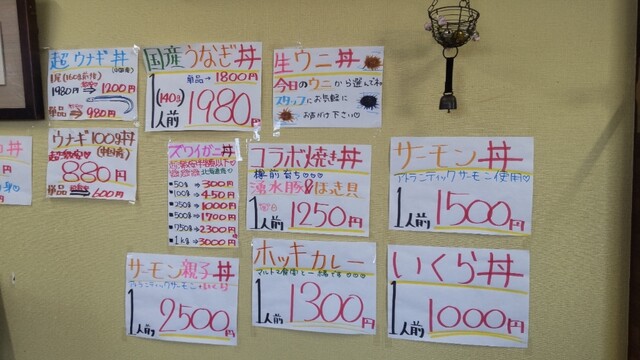 超ウナギ丼
1980円→1200円
単品→980円
国産うなぎ丼
単品→1800円
(140g)
1人前 1980円
生ウニ丼
今日のウニから選んでね
スタッフにお気軽に
お声がけ下さい♡
ウナギ100g丼
880円
単品→600円
ズワイガニ丼
50g→300円
100g→450円
250g→1000円
500g→1700円
750g→2300円
1kg→3000円
コラボ焼き丼
檜前岩ち♡♡♡
湧水豚&ほっき貝
1人前 1250円
サーモン丼
アトランティックサーモン使用♡
1人前 1500円
サーモン親子丼
アトランティックサーモン+いくら
1人前 2500円
ホッキカレー
マルトマ食堂と一緒です♡♡♡
1人前 1300円
いくら丼
1人前 1000円